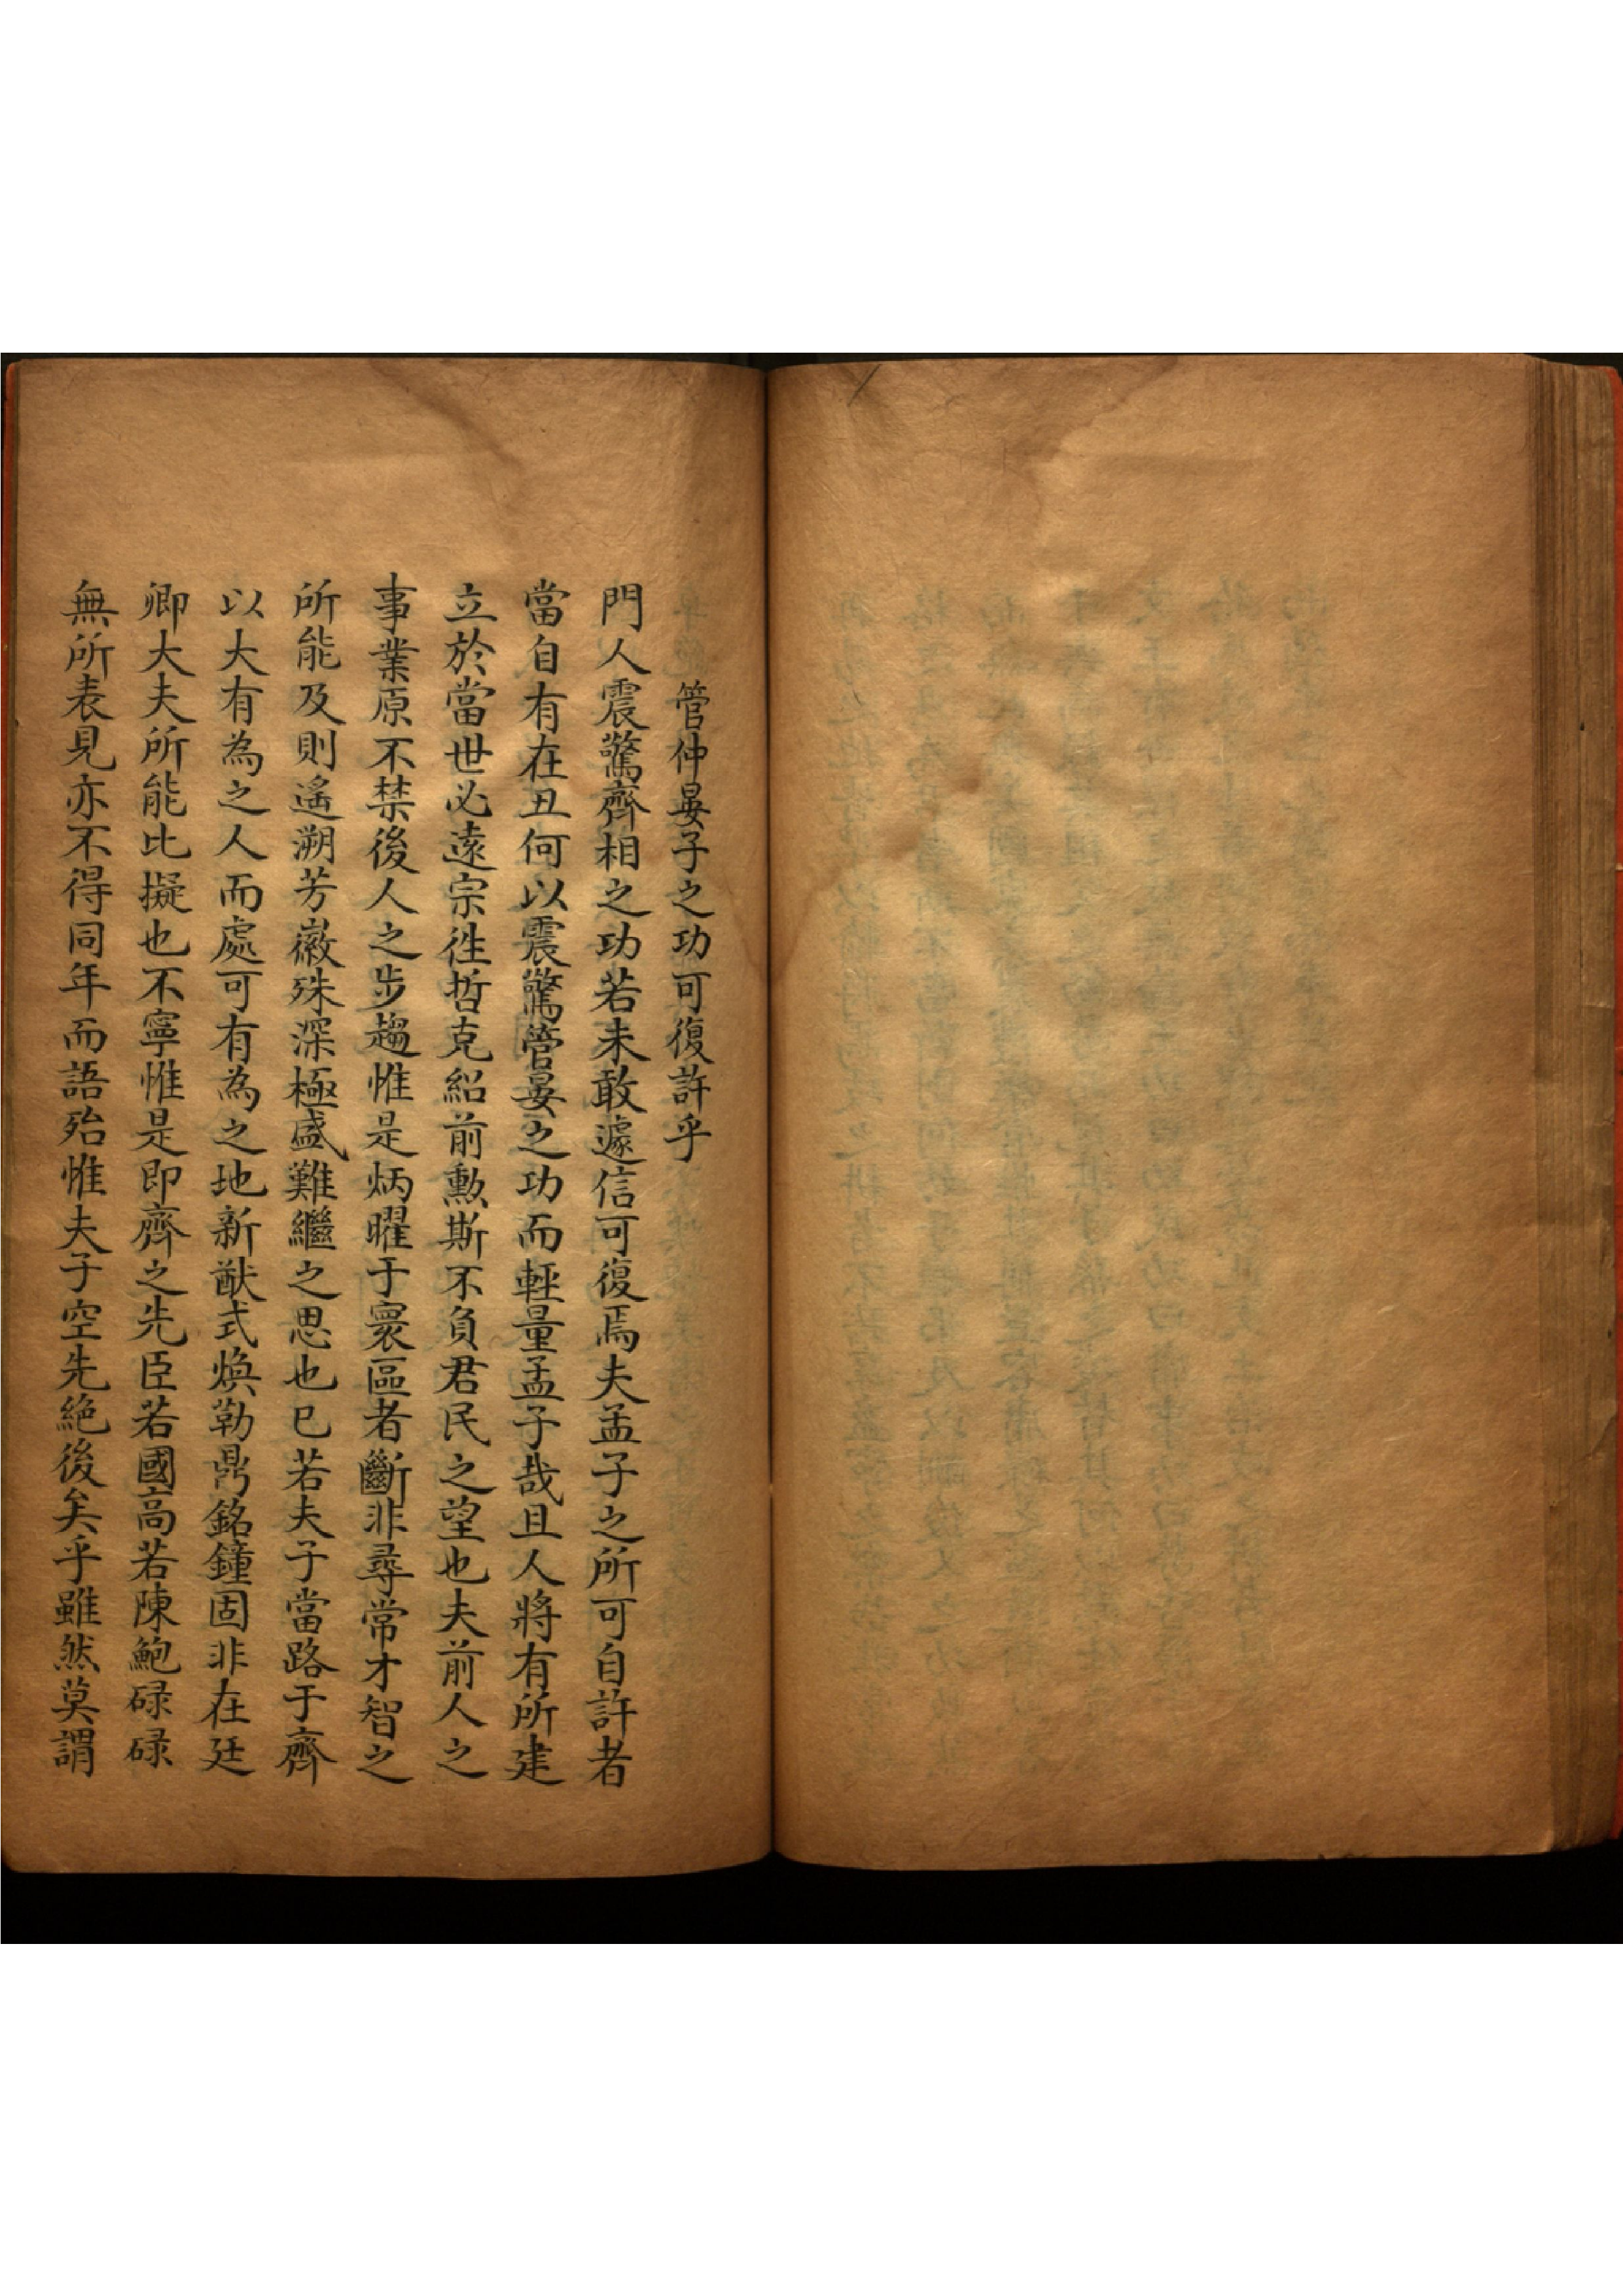 管仲晏子之功可復許乎
門人震驚齊相之功若未敢遽信可復焉夫孟子之所可自許者
當自有在丑何以震驚管晏之功而輕量孟子哉且人將有所建
立於當世必遠宗徃哲克紹前勲斯不負君民之望也夫前人之
事業原不禁後人之步趨惟是炳曜于寰區者斷非尋常才智之
所能及則遙溯芳徽殊深極盛難繼之思也已若夫子當路于齊
以大有為之人而處可有為之地新猷式煥勒鼎銘鐘固非在廷
卿大夫所能比擬也不寧惟是即齊之先臣若國高若陳鮑碌碌
無所表見亦不得同年而語殆惟夫子空先絶後矣乎雖然莫謂